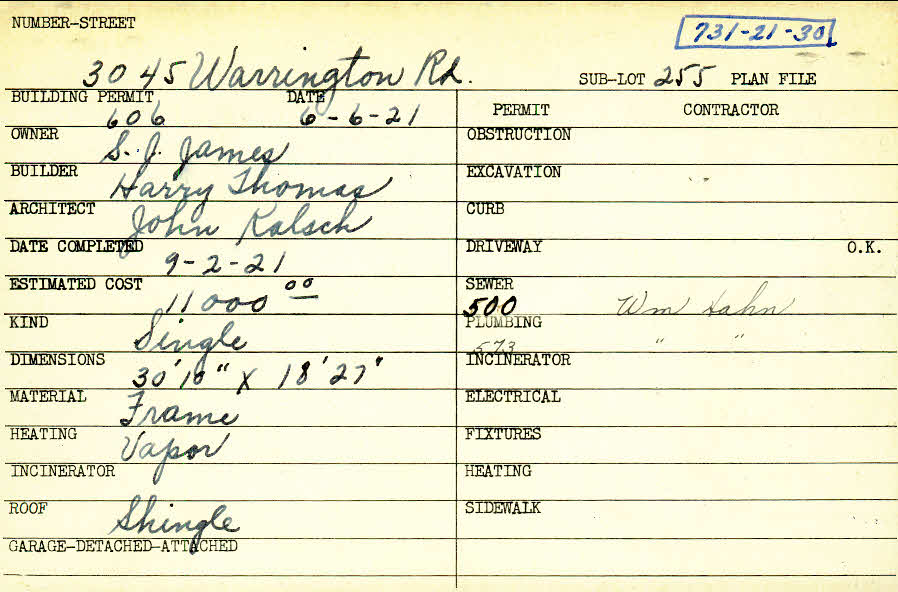 NUMBER-STREET
731-21-30
3045 Warrington Rd. SUB-LOT 255 PLAN FILE
BUILDING PERMIT DATE PERMIT CONTRACTOR
606 6-6-21
OWNER S. J. James OBSTRUCTION
BUILDER Harry Thomas EXCAVATION
ARCHITECT John Kalsch CURB
DATE COMPLETED 9-2-21 DRIVEWAY O.K.
ESTIMATED COST 11000 00 SEWER
500 Wm Hahn
KIND Single PLUMBING
573 " "
DIMENSIONS 30'10" X 18'27" INCINERATOR
MATERIAL Frame ELECTRICAL
HEATING Vapor FIXTURES
INCINERATOR HEATING
ROOF Shingle SIDEWALK
GARAGE-DETACHED-ATTACHED